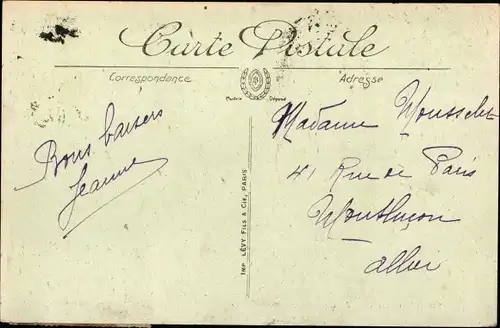 Carte Postale
Correspondance
Adresse
Modèle Déposé
Bons baisers
Jeanne
IMP. LÉVY FILS & CIE, PARIS
Madame
41 Rue de Paris
Montluçon
Allier